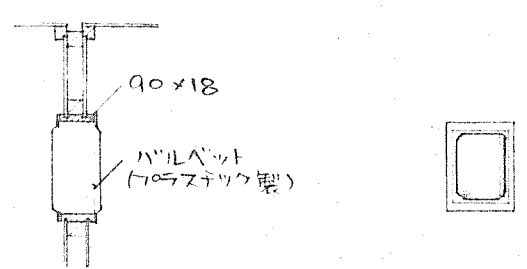 90×18
バルベット
(プラスチック製)